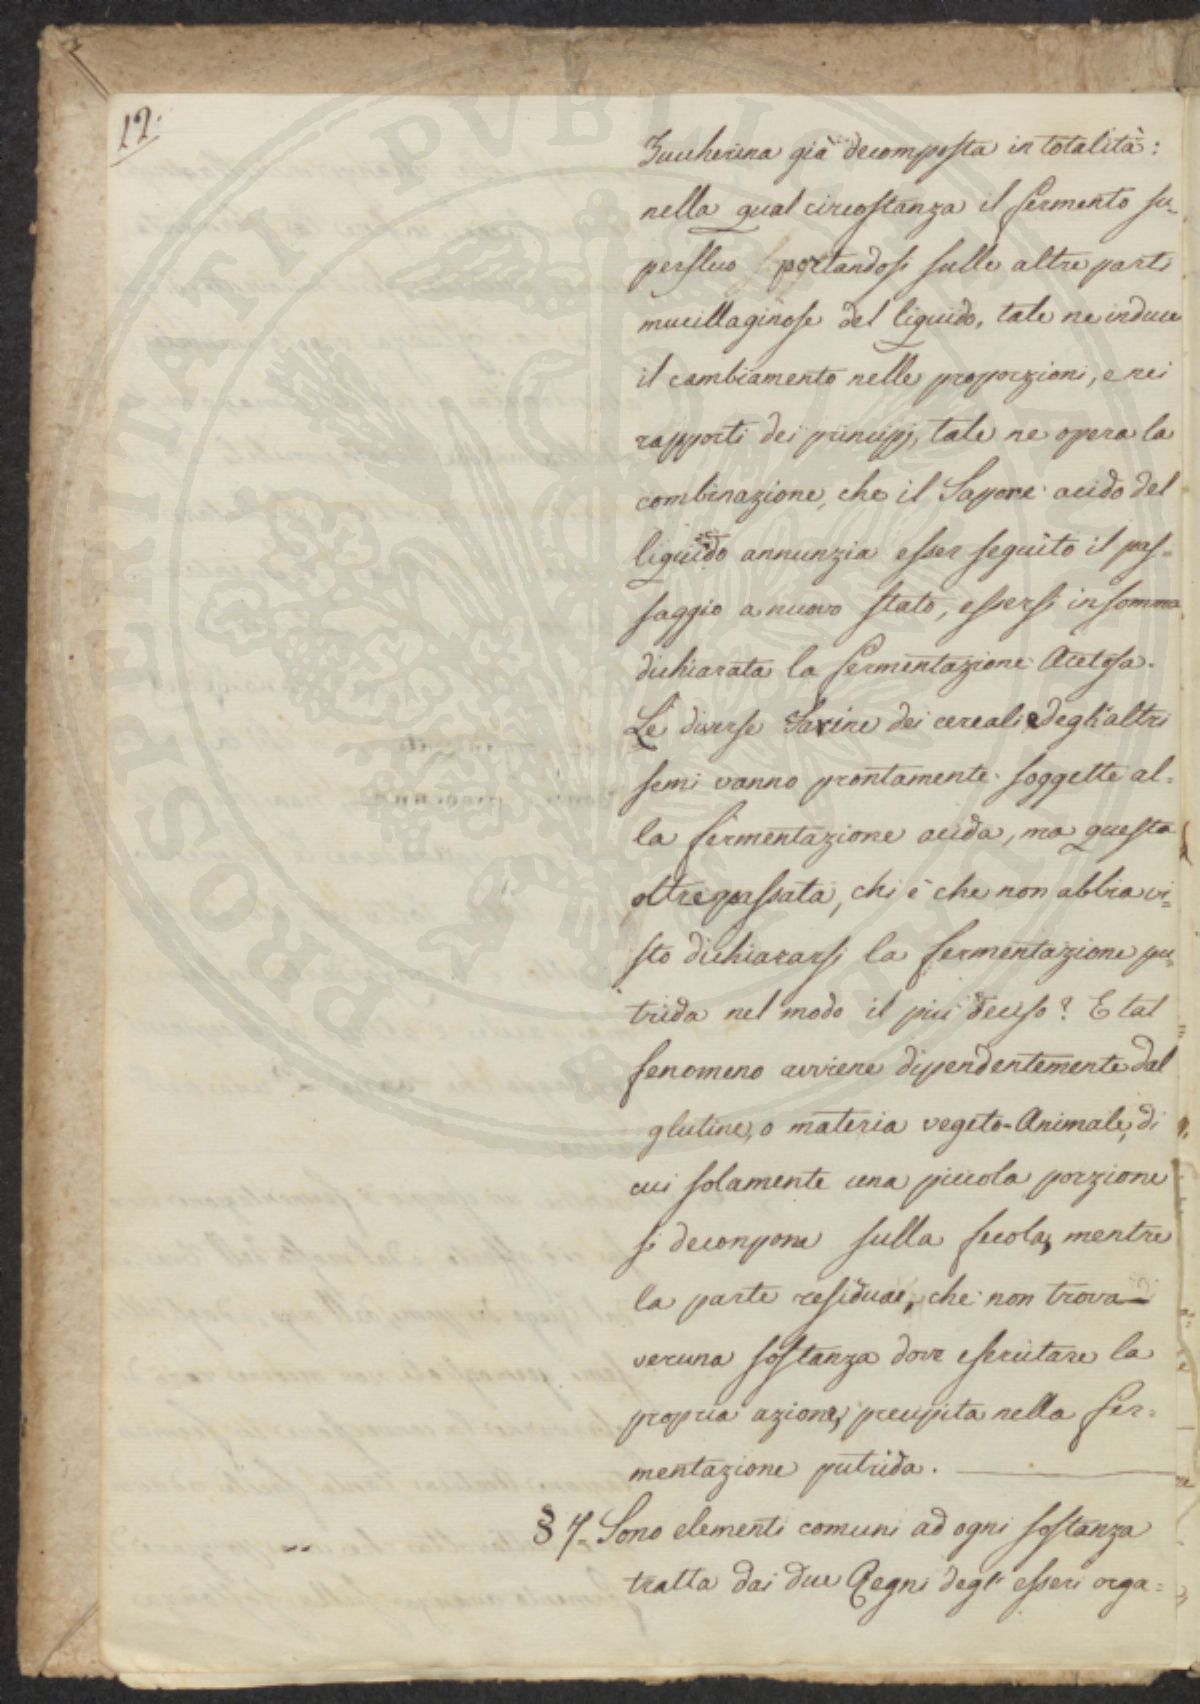 12.
Zuccherina già decomposta in totalità:
nella qual circostanza il fermento su-
perfluo portandosi sulle altre parti
mucillaginose del liquido, tale ne induce
il cambiamento nelle proporzioni, e nei
rapporti dei principj, tale ne opera la
combinazione, che il Sapore acido del
liquido annunzia esser seguìto il pas-
saggio a nuovo stato, essersi insomma
dichiarata la fermentazione Acetosa.
Le diverse Farine dei cereali e degl'altri
semi vanno prontamente soggette al-
la fermentazione acida, ma questa
oltrepassata, chi è che non abbia vi-
sto dichiararsi la fermentazione pu-
trida nel modo il più deciso? E tal
fenomeno avviene dipendentemente dal
glutine, o materia vegeto-Animale, di
cui solamente una piccola porzione
si decompone sulla fecola, mentre
la parte residuae, che non trova
veruna sostanza dove esercitare la
propria azione, precipita nella fer-
mentazione putrida.
§ 7. Sono elementi comuni ad ogni sostanza
tratta dai due Regni degl' esseri orga-
PROSPERITATI PVBLICAE